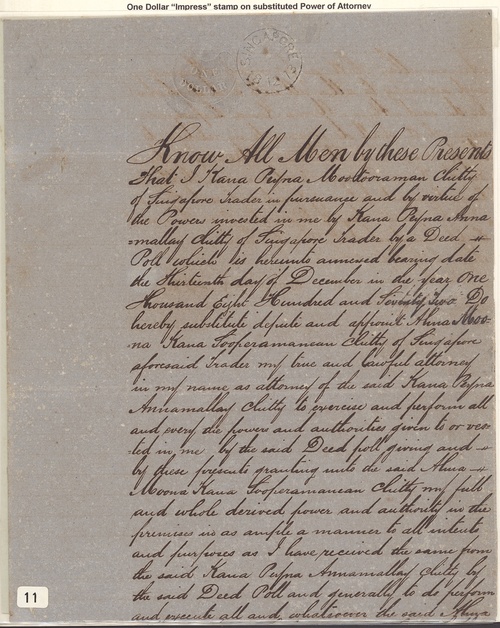 One Dollar "Impress" stamp on substituted Power of Attorney
SINGAPORE
Know All Men by these Presents
that I Kana Peyna Mootooraman Chitty
of Singapore Trader in pursuance and by virtue of
the Powers invested in me by Kana Peyna Anna
=mallay Chitty of Singapore Trader by a Deed
Poll which is hereunto annexed bearing date
the Thirteenth day of December in the year One
Thousand Eight Hundred and Seventy Two Do
hereby substitute depute and appoint Ahna Moo=
na Kana Sooperamanean Chitty of Singapore
aforesaid Trader my true and lawful attorney
in my name as attorney of the said Kana Peyna
Annamallay Chitty to exercise and perform all
and every the powers and authorities given to or ves=
ted in me by the said Deed poll giving and
by these presents granting unto the said Ahna
Moona Kana Sooperamanean Chitty my full
and whole derived power and authority in the
premises in as ample a manner to all intents
and purposes as I have received the same from
the said Kana Peyna Annamallay Chitty by
the said Deed Poll and generally to do perform
and execute all and whatsoever the said Ahna
11